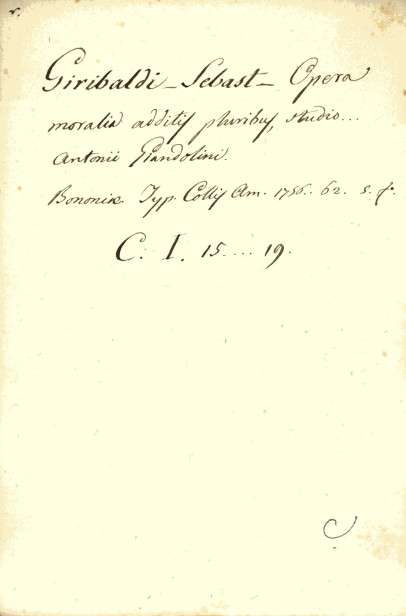 v.
Giribaldi - Sebast - Opera
moralia additis pluribus, studio...
Antonii Giandolini.
Bononiæ. Typ. Collis Am. 1756.. 62. 5. f.
C. I. 15.... 19.
C